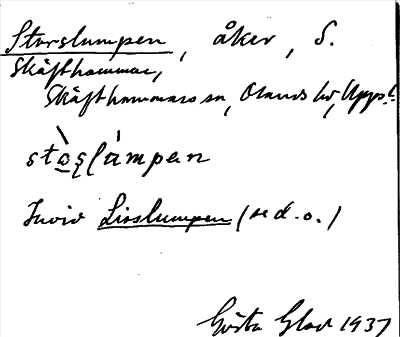 Storslumpen, åker, S.
Skäfthammar,
Skäfthammars sn, Olands hd, Upps. l.
stɑ̀s̨lámpen
Invid Lisslumpen (se d. o.)
Gösta Glad 1937